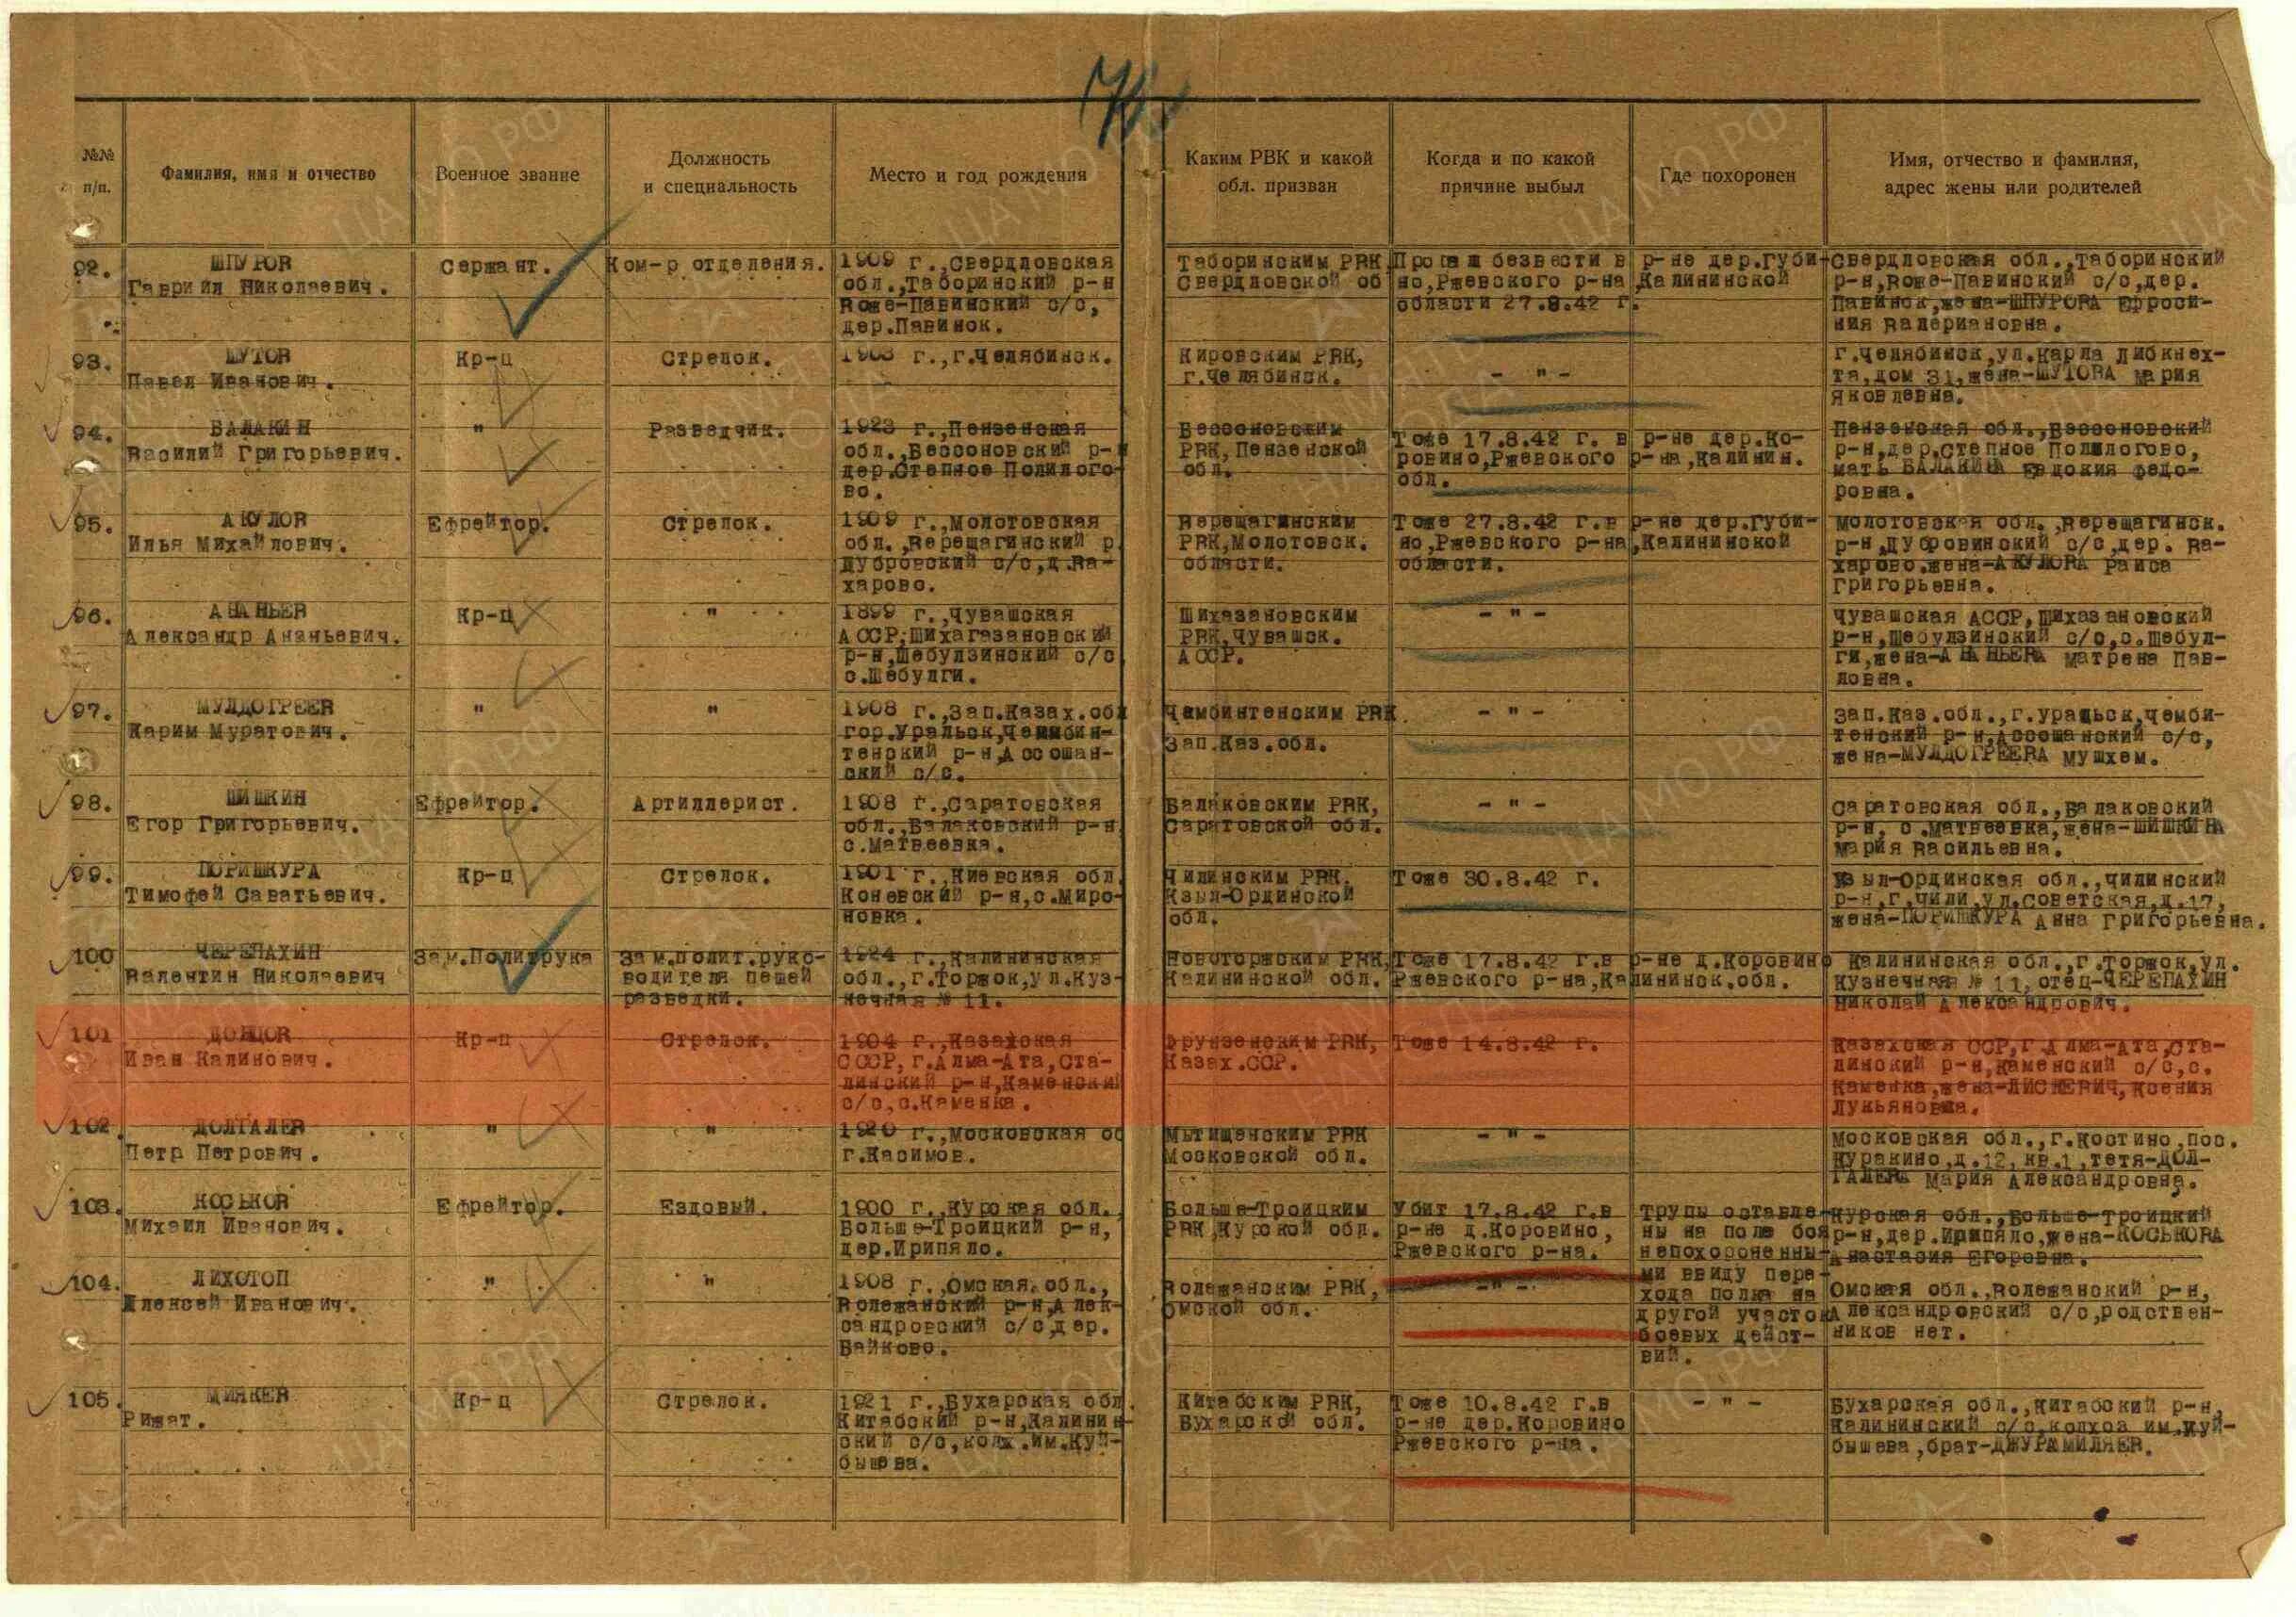 №№ п/п.
Фамилия, имя и отчество
Военное звание
Должность и специальность
Место и год рождения
Каким РВК и какой обл. призван
Когда и по какой причине выбыл
Где похоронен
Имя, отчество и фамилия, адрес жены или родителей
92.
ШПУРОВ
Гавриил Николаевич.
Сержант.
Ком-р отделения.
1909 г.,Свердловская
обл.,Таборинский р-н
дер.Павинок.
Таборинским РВК
Свердловской об
безвести в р-не дер.Губи-
но,Ржевского р-на,Калининской
области 27.8.42 г.
Свердловская обл.,Таборинский
с/с,дер.
Павинок,жена-ШПУРОВА Ефроси-
ния Валериановна.
93.
ШУТОВ
Павел Иванович.
Кр-ц
Стрелок.
г.,г.Челябинск.
Кировским РВК,
г.Челябинск.
- " -
г.Челябинск,ул.Карла Либкнех-
та,дом 31,жена-ШУТОВА Мария
Яковлевна.
94.
БАЛАКИН
Василий Григорьевич.
"
Разведчик.
1923 г.,Пензенская
обл.,Бессоновский р-н
дер.Степное Полилого-
во.
Бессоновским
РВК,Пензенской
обл.
Тоже 17.8.42 г. в р-не дер.Ко-
ровино,Ржевского р-на,Калинин.
обл.
Пензенская обл.,Бессоновский
р-н,дер.Степное Полилогово,
мать БАЛАКИНА Евдокия Федо-
ровна.
95.
АКУЛОВ
Илья Михайлович.
Ефрейтор.
Стрелок.
1909 г.,Молотовская
обл.,Верещагинский р
Дубровский с/с,д.Ва-
харово.
Верещагинским
РВК,Молотовск.
области.
Тоже 27.8.42 г.в р-не дер.Губи-
но,Ржевского р-на,Калининской
области.
Молотовская обл.,Верещагинск.
р-н,Дубровинский с/с,дер. Ва-
харово.жена-АКУЛОВА Раиса
Григорьевна.
96.
АНАНЬЕВ
Александр Ананьевич.
Кр-ц
"
1899 г.,Чувашская
АССР,Шихагазановский
р-н,Шебулзинский с/с
с.Шебулги.
Шихазановским
РВК,Чувашск.
АССР.
- " -
Чувашская АССР,Шихазановский
р-н,Шебулзинский с/с,с.Шебул-
ги,жена-АНАНЬЕВА Матрена Пав-
ловна.
97.
МУЛДОГРЕЕВ
Карим Муратович.
"
"
1908 г.,Зап.Казах.обл
гор.Уральск,Чембин-
тенский р-н,Ассошан-
ский с/с.
Чембинтенским РВК.
Зап.Каз.обл.
- " -
Зап.Каз.обл.,г.Уральск,Чемби-
тенский р-н,Ассощанский с/с,
жена-МУЛДОГРЕЕВА Мушхем.
98.
ШИШКИН
Егор Григорьевич.
Ефрейтор.
Артиллерист.
1908 г.,Саратовская
обл.,Балаковский р-н
с.Матвеевка.
Балаковским РВК,
Саратовской обл.
- " -
Саратовская обл.,Балаковский
р-н, с.Матвеевка,жена-ШИШКИНА
Мария Васильевна.
99.
ПОРИШКУРА
Тимофей Саватьевич.
Кр-ц
Стрелок.
1901 г.,Киевская обл.
Коневский р-н,с.Миро-
новка.
Чилинским РВК,
Кзыл-Ординской
обл.
Тоже 30.8.42 г.
Кзыл-Ординская обл.,Чилинский
р-н,г.Чили,ул.Советская,д.17,
жена-ПОРИШКУРА Анна Григорьевна.
100
ЧЕРЕПАХИН
Валентин Николаевич
Зам.Политрука
Зам.полит.руко-
водителя пешей
разведки.
1924 г.,Калининская
обл.,г.Торжок,ул.Куз-
нечная № 11.
Новоторжским РВК,
Калининской обл.
Тоже 17.8.42 г.в р-не д.Коровино
Ржевского р-на,Калининск.обл.
Калининская обл.,г.Торжок,ул.
Кузнечная № 11,отец-ЧЕРЕПАХИН
Николай Александрович.
101
ДОНЦОВ
Иван Калинович.
Кр-ц
Стрелок.
1904 г.,Казахская
СССР,г.Алма-Ата,Ста-
линский р-н,Каменский
с/с,с.Каменка.
Фрунзенским РВК,
Казах.ССР.
Тоже 14.8.42 г.
Казахская ССР,г.Алма-Ата,Ста-
линский р-н,Каменский с/с,с.
Каменка,жена-ЛИСНЕВИЧ,Ксения
Лукьяновна.
102.
ДОЛГАЛЕВ
Петр Петрович.
"
"
1920 г.,Московская об
г.Касимов.
Мытищенским РВК
Московской обл.
- " -
Московская обл.,г.Костино,пос.
Куракино,д.12,кв.1,тетя-ДОЛ-
ГАЛЕВА Мария Александровна.
103.
КОСЬКОВ
Михаил Иванович.
Ефрейтор.
Ездовый.
1900 г.,Курская обл.
Больше-Троицкий р-н,
дер.Ирипяло.
Больше-Троицким
РВК,Курской обл.
Убит 17.8.42 г.в
р-не д.Коровино,
Ржевского р-на.
Трупы оставле-
ны на поле боя
непохороненны-
ми ввиду пере-
хода полка на
другой участок
боевых дейст-
вий.
Курская обл.,Больше-Троицкий
р-н,дер.Ирипяло,жена-КОСЬКОВА
Анастасия Егоровна.
104.
ЛИХОТОП
Алексей Иванович.
"
"
1908 г.,Омская обл.,
Волежанский р-н,Алек-
сандровский с/с,дер.
Вайково.
Волежанским РВК,
Омской обл.
- " -
Омская обл.,Волежанский р-н,
Александровский с/с,родствен-
ников нет.
105.
МИЯКЕВ
Рижат.
Кр-ц
Стрелок.
1921 г.,Бухарская обл.
Китабский р-н,Калинин-
ский с/с,колх.им.Куй-
бышева.
Китабским РВК,
Бухарской обл.
Тоже 10.8.42 г.в
р-не дер.Коровино
Ржевского р-на.
- " -
Бухарская обл.,Китабский р-н,
Калининский с/с,колхоз им.Куй-
бышева,брат-ДЖУРАМИЛЯЕВ.
ЦАМО РФ